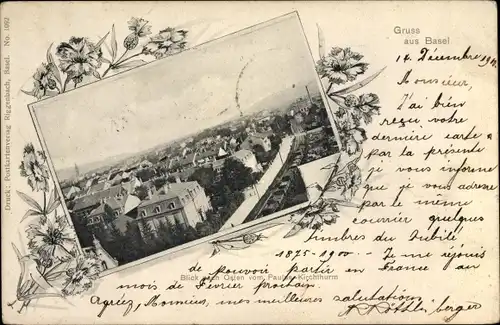 Druck: Postkartenverlag Riggenbach, Basel. No. 1082
Gruss
aus Basel
14 Décembre 190
Monsieur,
J'ai bien
reçu votre
dernière carte
par la présente
je vous informe
que je vous adresse
par le même
courrier quelques
timbres du Jubilé
1875-1900. - Je me réjouis
de pouvoir partir en France au
Blick nach Osten vom Paulus-Kirchthurm
mois de Février prochain.
Agréez, Monsieur, mes meilleures salutations